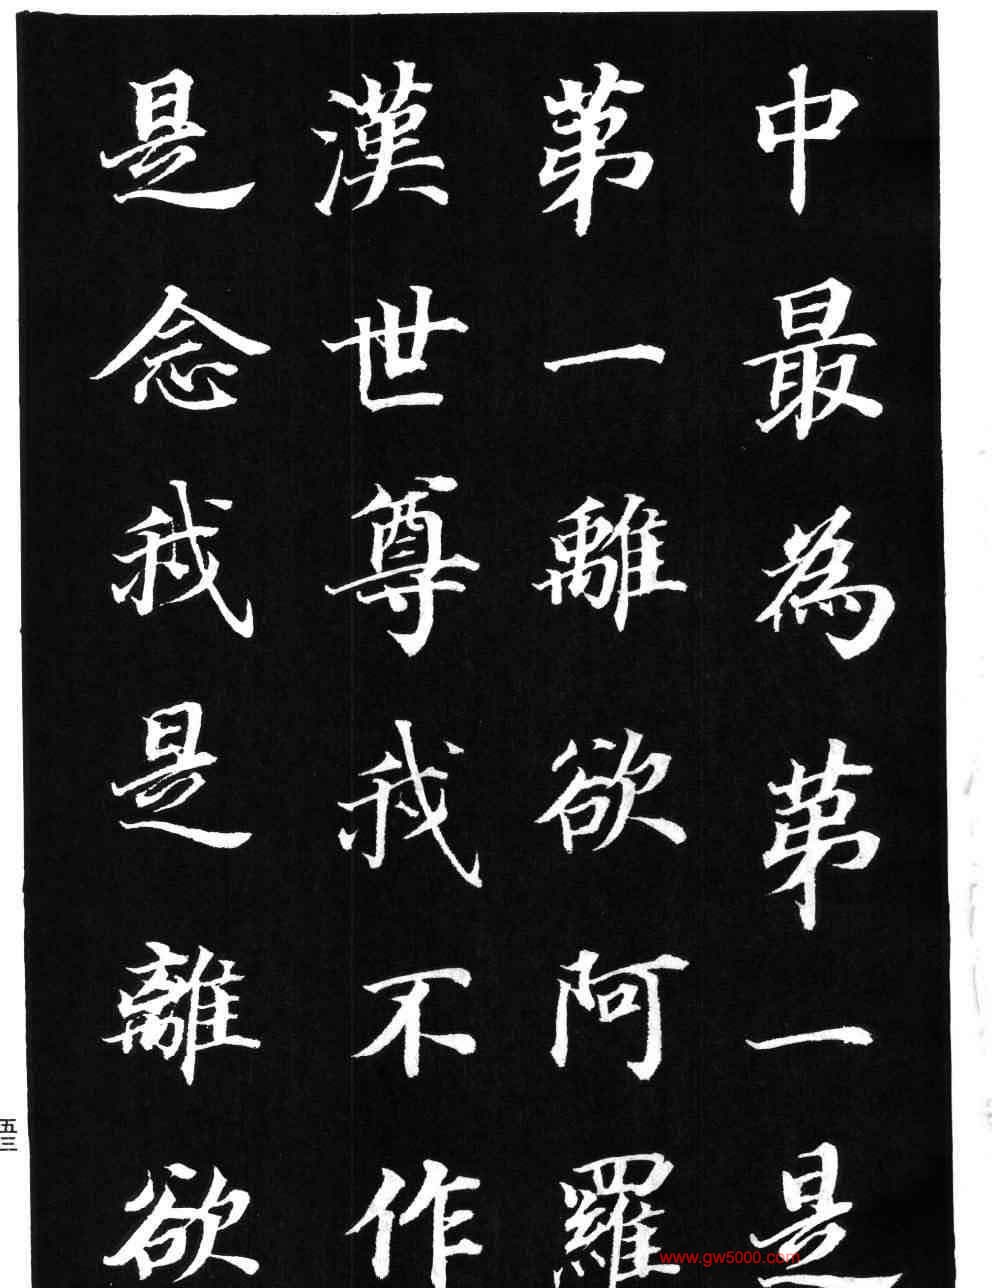 中最為苐一是
苐一離欲阿羅
漢世尊我不作
是念我是離欲
五三
www.gw5000.com